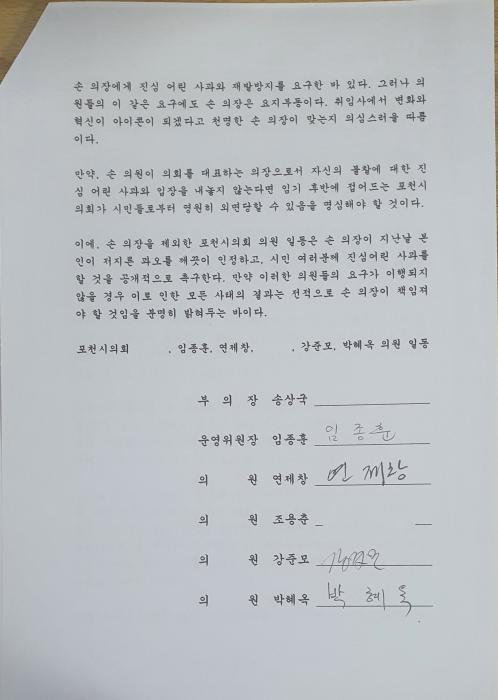 손 의장에게 진심 어린 사과와 재발방지를 요구한 바 있다. 그러나 의
원들의 이 같은 요구에도 손 의장은 요지부동이다. 취임사에서 변화와
혁신이 아이콘이 되겠다고 천명한 손 의장이 맞는지 의심스러울 따름
이다.
만약, 손 의원이 의회를 대표하는 의장으로서 자신의 불찰에 대한 진
심 어린 사과와 입장을 내놓지 않는다면 임기 후반에 접어드는 포천시
의회가 시민들로부터 영원히 외면당할 수 있음을 명심해야 할 것이다.
이에, 손 의장을 제외한 포천시의회 의원 일동은 손 의장이 지난날 본
인이 저지른 과오를 깨끗이 인정하고, 시민 여러분께 진심어린 사과를
할 것을 공개적으로 촉구한다. 만약 이러한 의원들의 요구가 이행되지
않을 경우 이로 인한 모든 사태의 결과는 전적으로 손 의장이 책임져
야 할 것임을 분명히 밝혀두는 바이다.
포천시의회 , 임종훈, 연제창, , 강준모, 박혜옥 의원 일동
부 의 장 송상국
운영위원장 임종훈 임종훈
의 원 연제창 연제창
의 원 조용춘
의 원 강준모
의 원 박혜옥 박혜옥